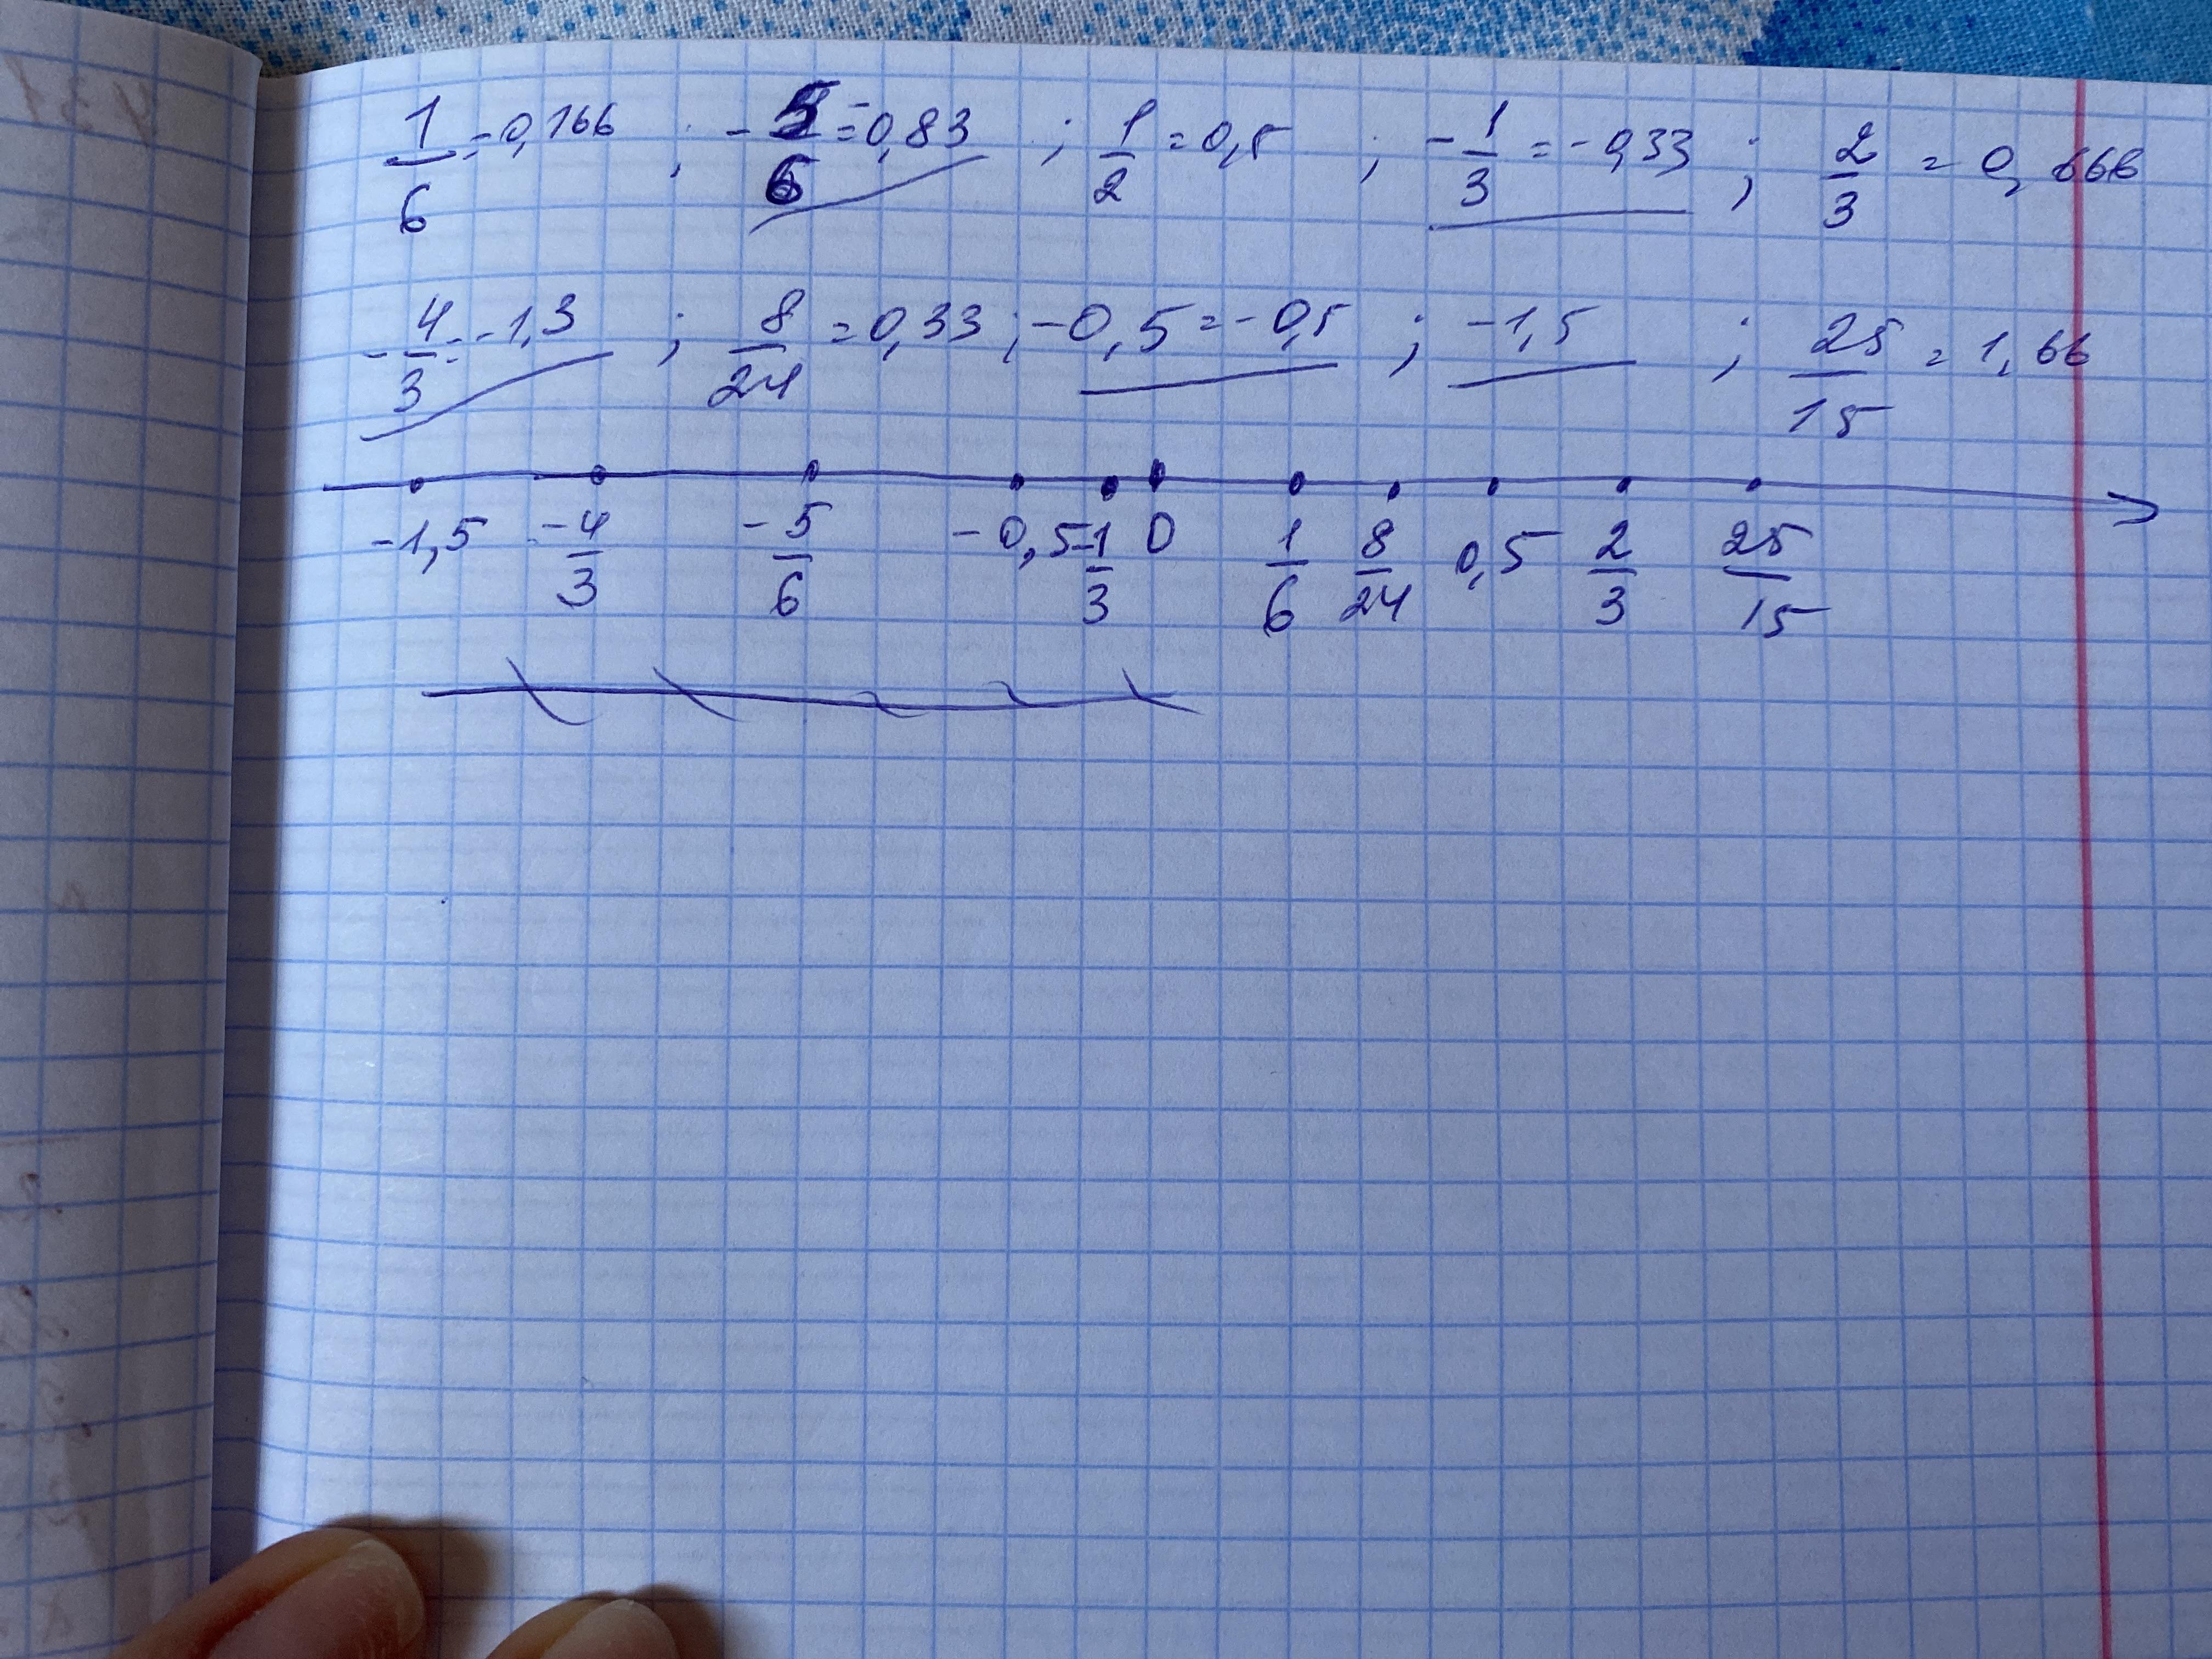 1/6 = 0,166 ; -5/6 = -0,83 ; 1/2 = 0,5 ; -1/3 = -0,33 ; 2/3 = 0,666
-4/3 = -1,3 ; 8/24 = 0,33 ; -0,5 = -0,5 ; -1,5 ; 25/15 = 1,66
-1,5 -4/3 -5/6 -0,5 -1/3 0 1/6 8/24 0,5 2/3 25/15